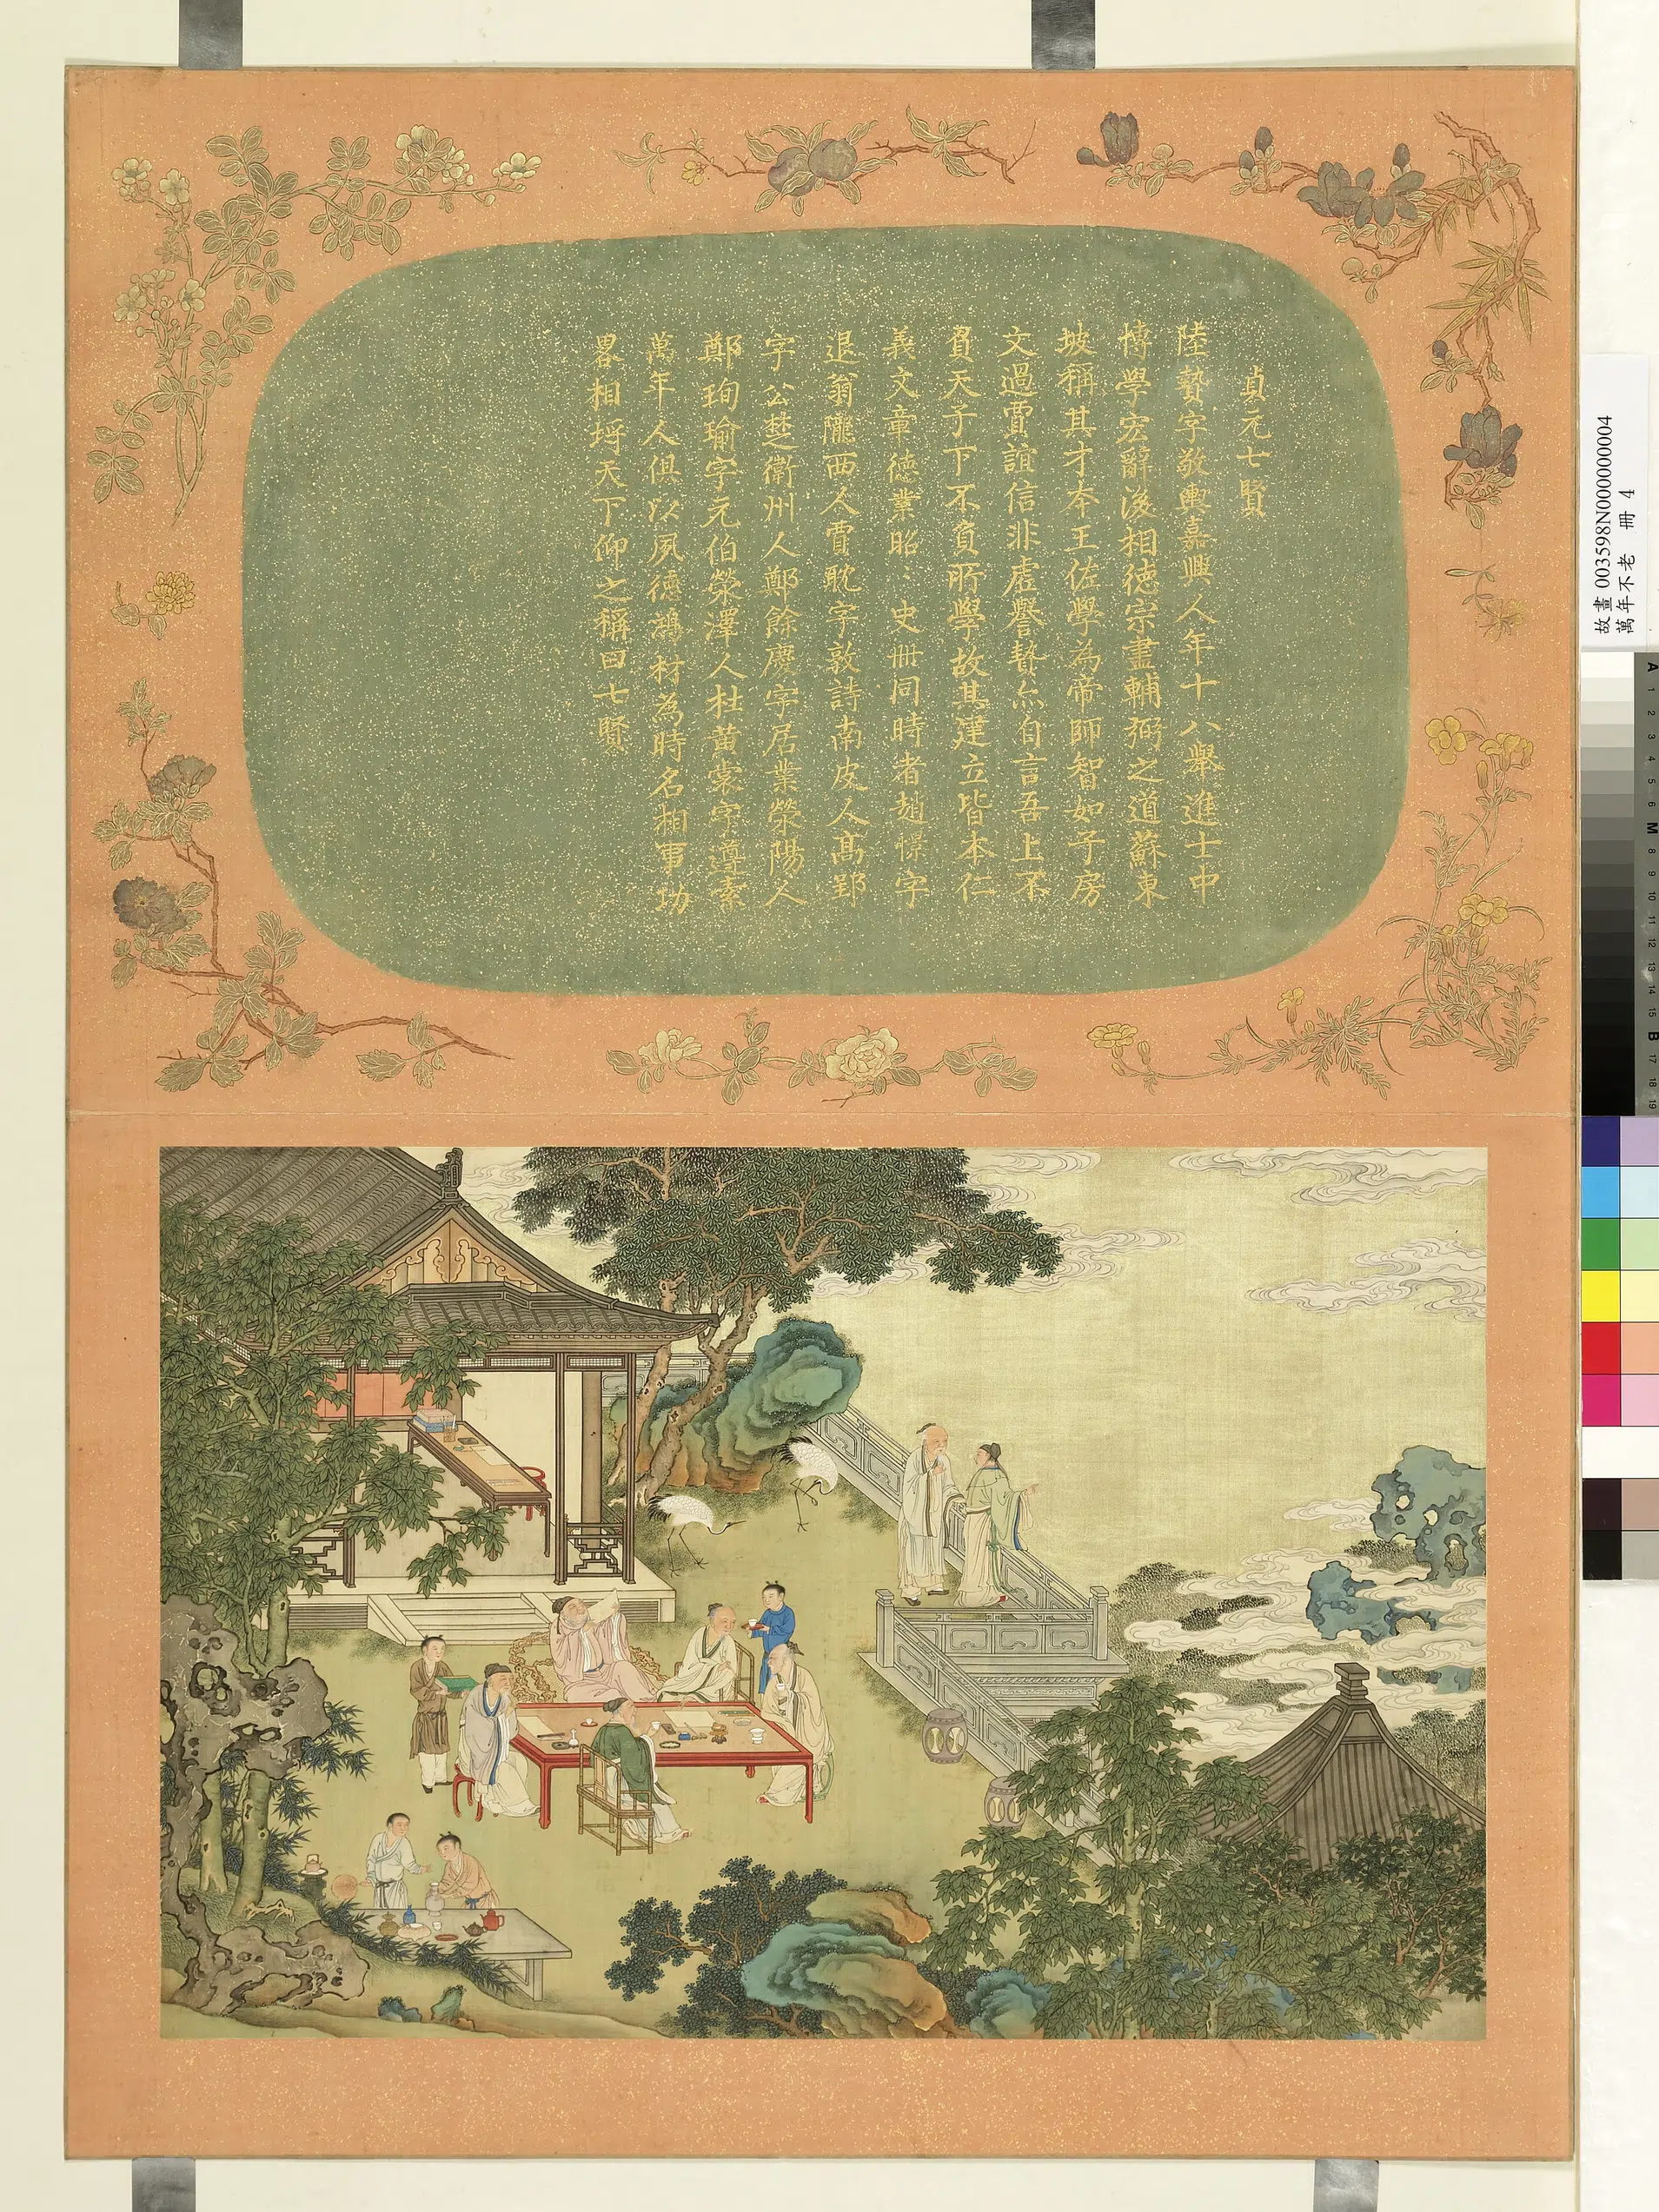 貞元七賢
陸贄字敬輿嘉興人年十八舉進士中
博學宏辭後相德宗盡輔弼之道蘇東
坡稱其才本王佐學為帝師智如子房
文過賈誼信非虛譽贄亦自言吾上不
負天子下不負所學故其建立皆本仁
義文章德業昭〻史冊同時者趙憬字
退翁隴西人賈耽字敦詩南皮人高郢
字公楚衞州人鄭餘慶字居業滎陽人
鄭珣瑜字元伯滎澤人杜黄裳字遵素
萬年人俱以夙德鴻材為時名相事功
畧相埒天下仰之稱曰七賢
故畫 003598N000000004
萬年不老 冊 4
A 1 2 3 4 5 6 M 8 9 10 11 12 13 14 15 B 17 18 19